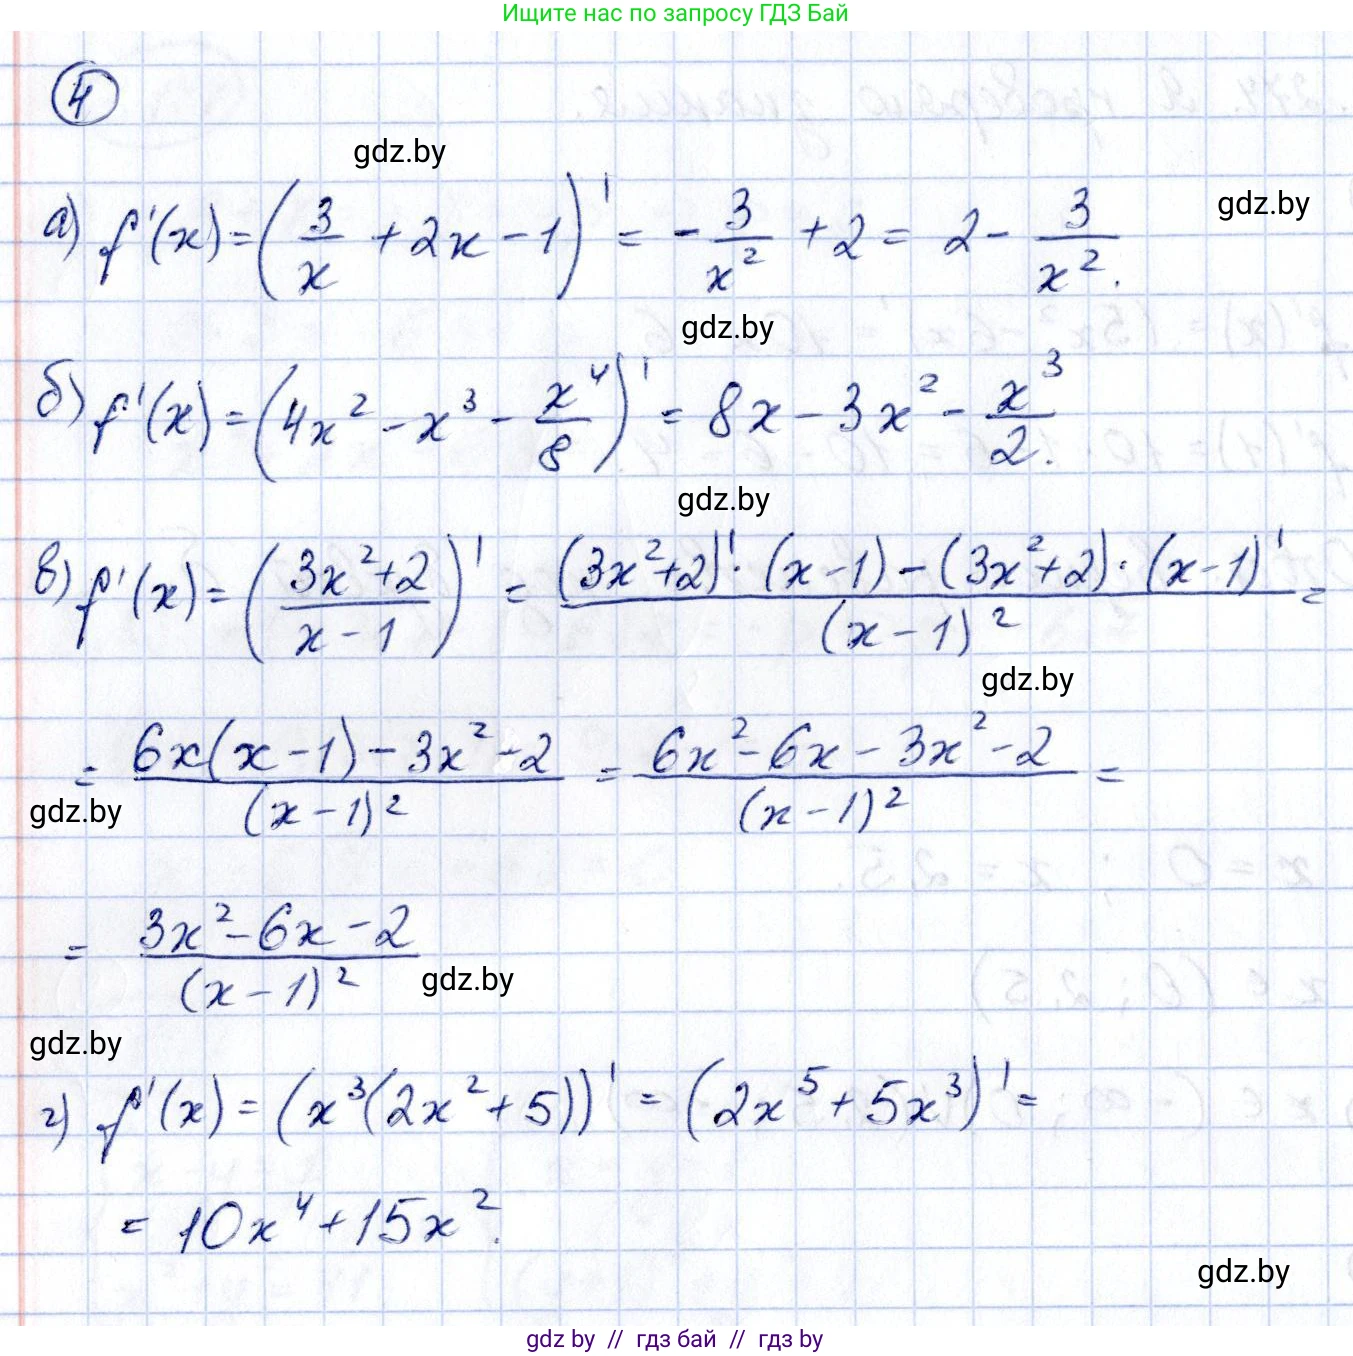 Ищите нас по запросу ГДЗ Бай
4
gdz.by
а) f'(x) = (3/x + 2x - 1)' = - 3/x² + 2 = 2 - 3/x².
gdz.by
gdz.by
б) f'(x) = (4x² - x³ - x⁴/8)' = 8x - 3x² - x³/2.
gdz.by
в) f'(x) = ((3x²+2)/(x-1))' = ((3x²+2)'·(x-1) - (3x²+2)·(x-1)')/(x-1)² =
gdz.by
= (6x(x-1) - 3x² - 2)/(x-1)² = (6x² - 6x - 3x² - 2)/(x-1)² =
gdz.by
= (3x² - 6x - 2)/(x-1)²
gdz.by
gdz.by
г) f'(x) = (x³(2x²+5))' = (2x⁵ + 5x³)' =
= 10x⁴ + 15x².
gdz.by
gdz by // гдз бай // гдз by